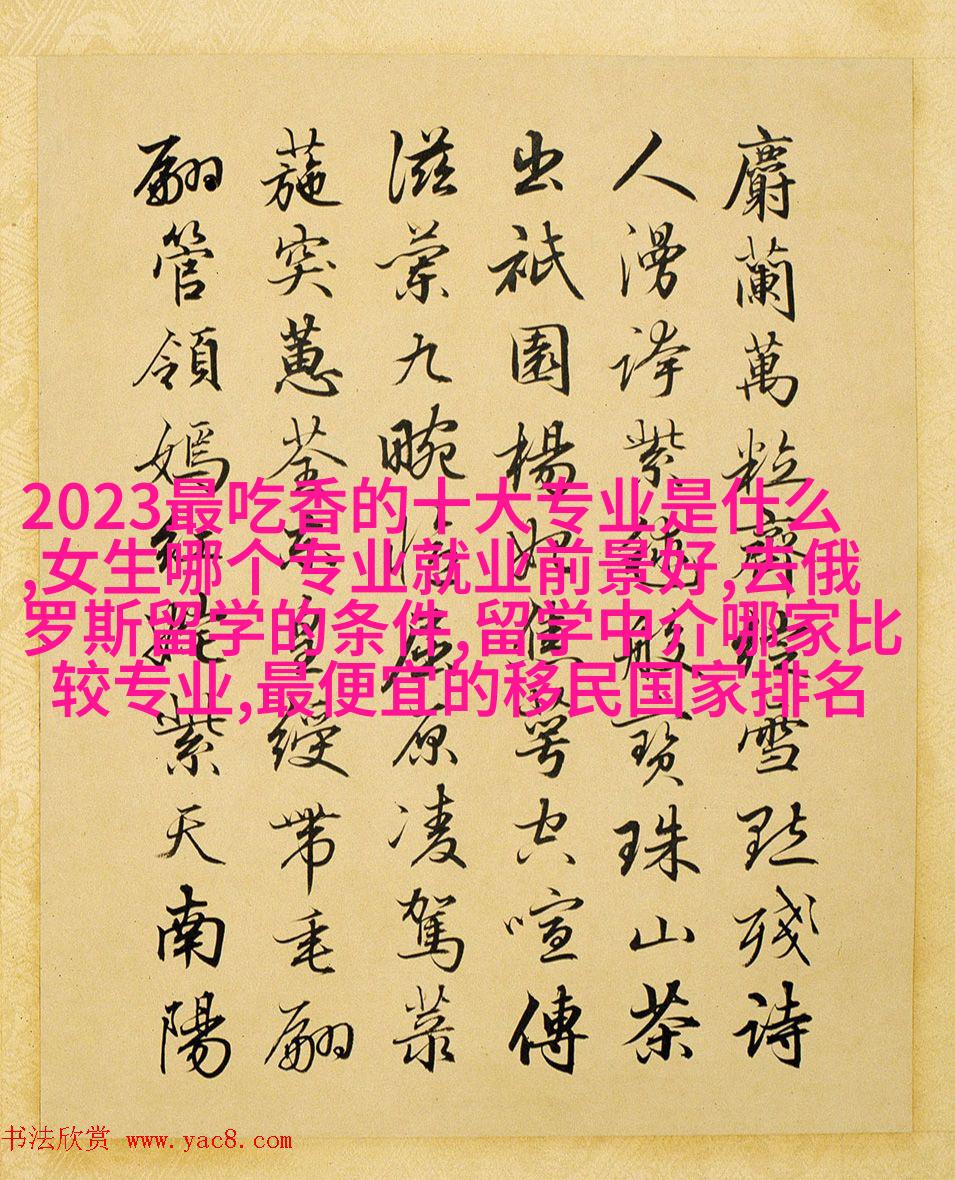 2023最吃香的十大专业是什么
,女生哪个专业就业前景好,去俄
罗斯留学的条件,留学中介哪家比
较专业,最便宜的移民国家排名
麝蘭萬粒齊雪點殘詩
人漫誇紫般寶珠山茶
出祇園楊妃焦萼空喧傳
滋蘭九畹屈原凌駕菉
葹突蕙荃皇綬帶毛翩
翩管領嫣紅紫天南陽
书法欣赏 www.yac8.com